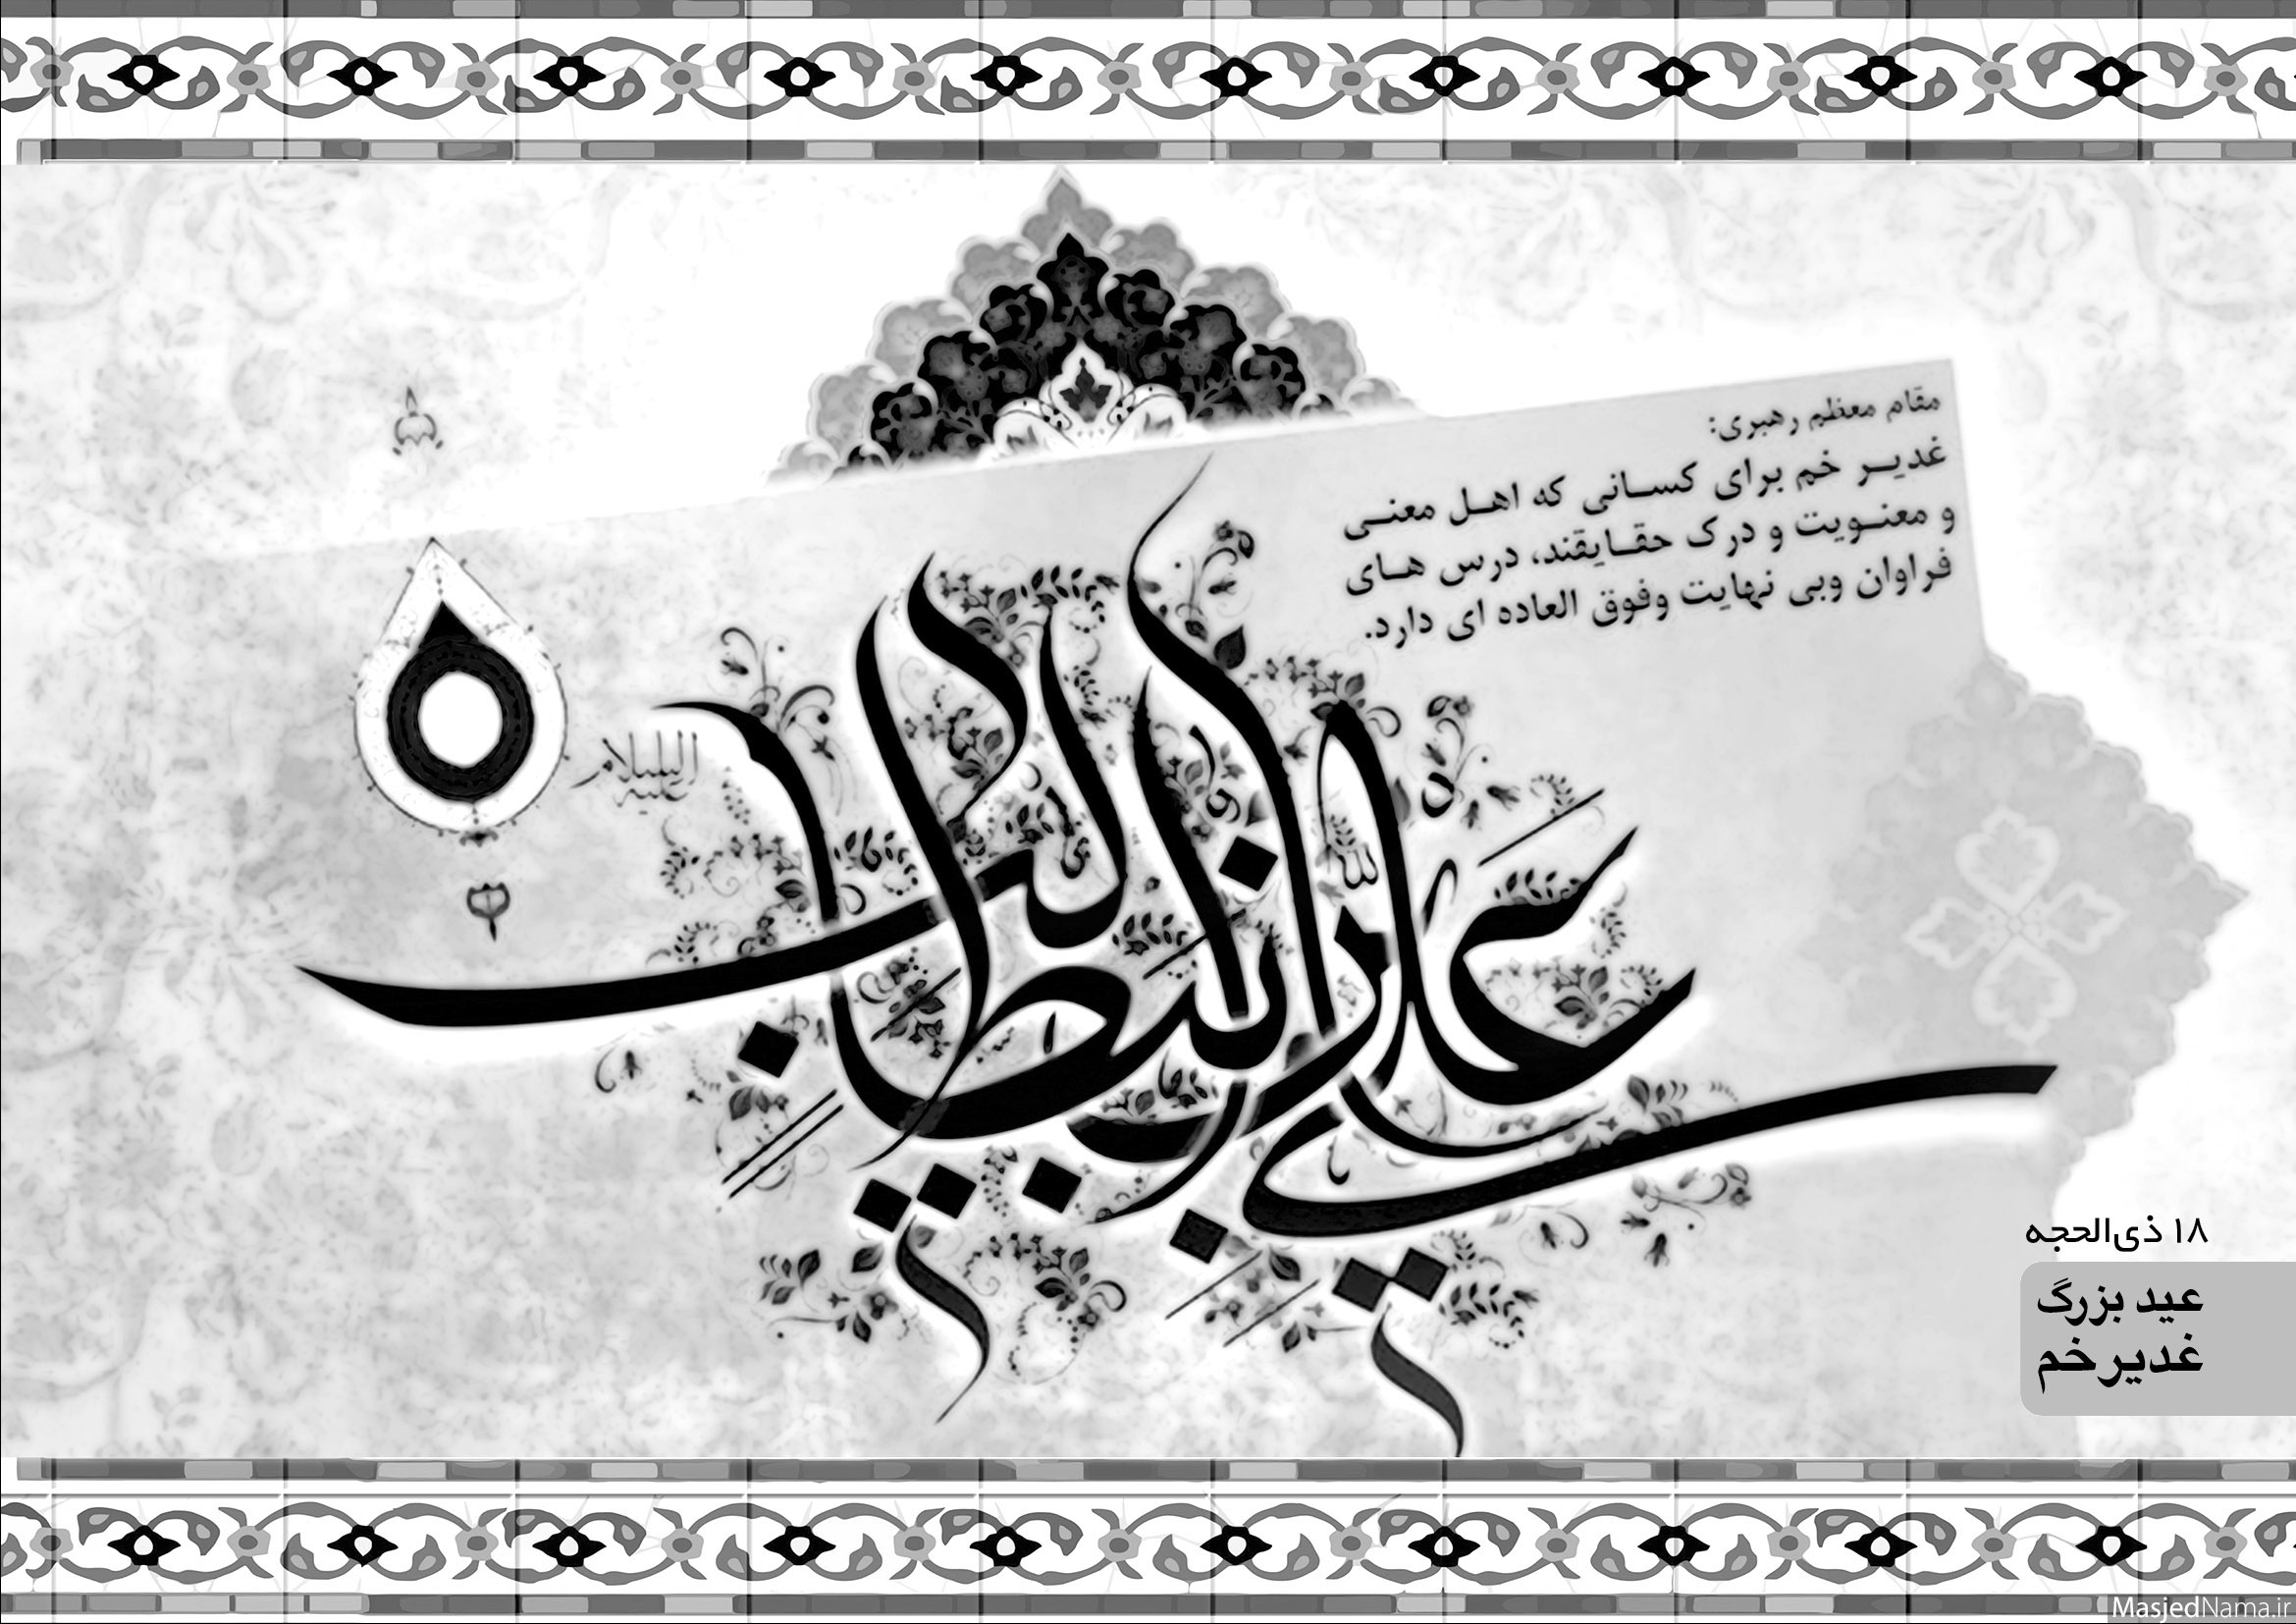 مقام معظم رهبری:
غدیر خم برای کسانی که اهل معنی
و معنویت و درک حقایقند، درس های
فراوان وبی نهایت وفوق العاده ای دارد.
علی بن ابیطالب
علیه السلام
۱۸ ذی‌الحجه
عید بزرگ
غدیر خم
MasjedNama.ir